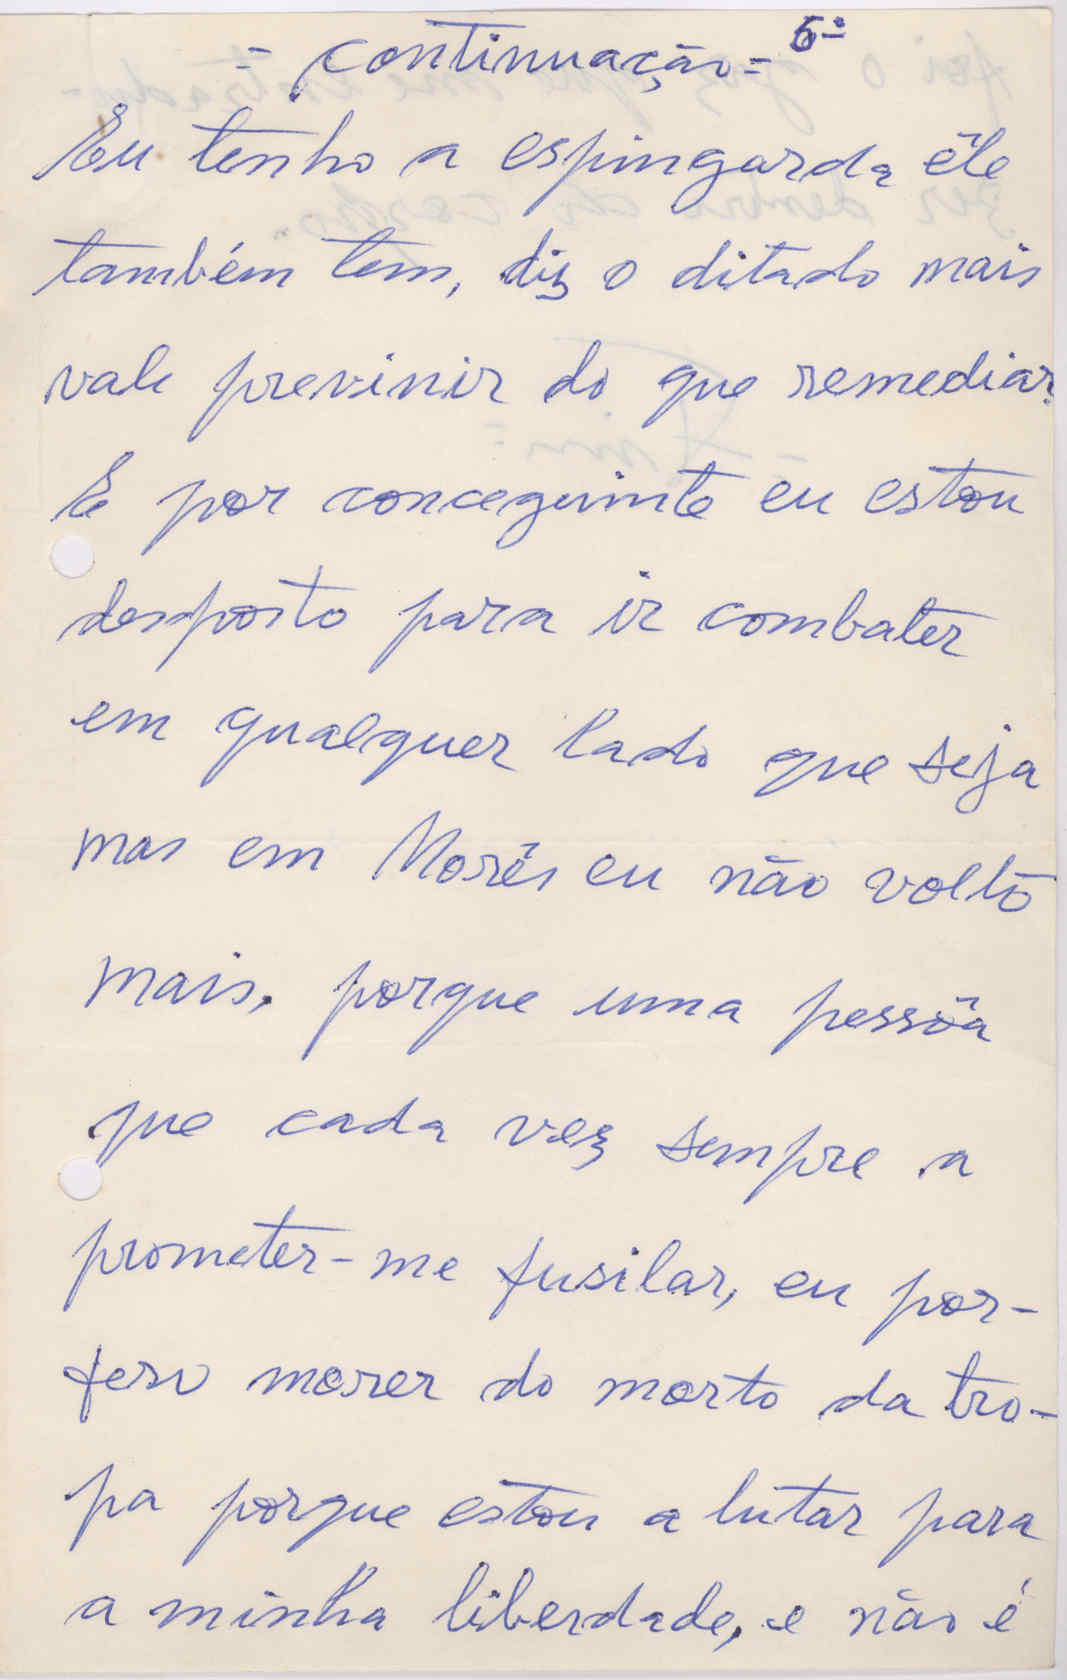 = continuação = 6º
Eu tenho a espingarda êle
também tem, diz o ditado mais
vale previnir do que remediar.
E por conceguinte eu estou
desposto para ir combater
em qualquer lado que seja
mas em Morés eu não volto
mais. porque uma pessôa
que cada vez sempre a
prometer-me fusilar, eu por-
fero morer do morto da tro-
pa porque estou a lutar para
a minha liberdade, e não é